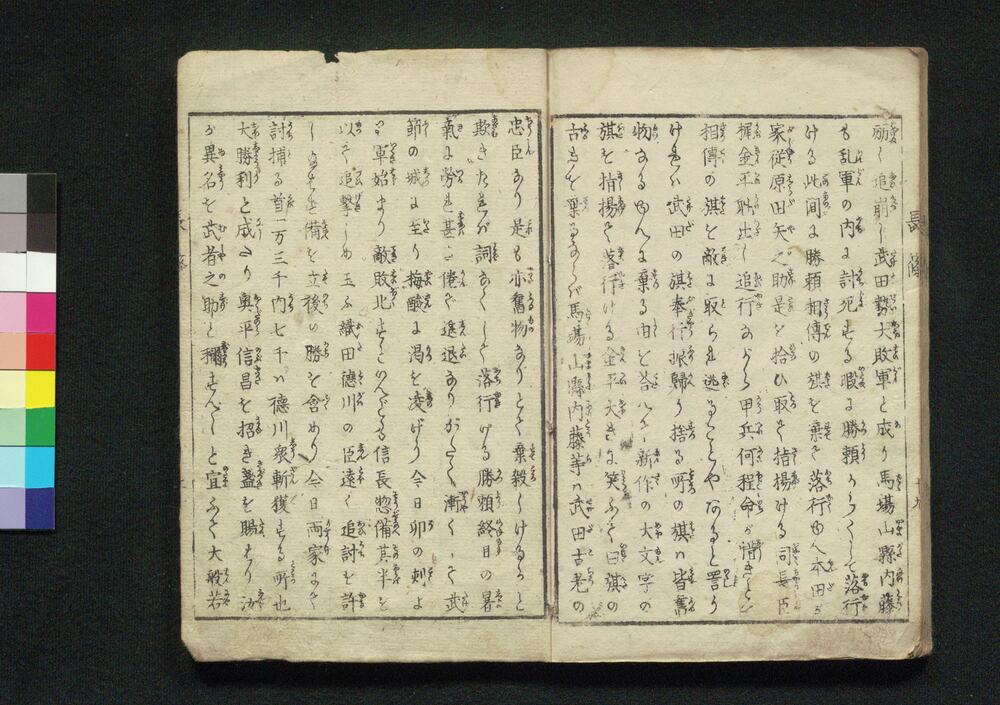 励く追崩し武田勢大敗軍と成り馬場山縣内藤
も乱軍の内に討死する暇に勝頼からくして落行
ける此间に勝頼相傳の旗を棄て落行ゆへ本田が
家従原田矢之助是を拾ひ取て捨揚ける司長臣
梶金平馳出し追行ながら甲兵何程命が惜きとて
相傳の旗を敵に取られ逃ることやあると詈り
ければ武田の旗奉行振歸り捨る所の旗ハ皆舊
物なるゆへに棄る由を答へ新作の大文字の
旗を指揚て落行ける金平大きに笑ふて曰旗の
古きを棄るならバ馬場山縣内藤等ハ武田古老の
忠臣なり是も亦舊物なりとて棄殺しけるかと
欺きたれ共詞なくして落行ける勝頼終日の暑
氣に勞れ甚だ倦や進退なりがたく漸くにて武
節の城に至り梅酸に渇を凌げり今日卯の刻よ
り軍始まり敵敗北すとひとしく信長惣備其半を
以て追撃しめ玉ふ織田徳川の臣遠く追討を許
備を立後の勝を含めり今日両家にて
討捕る首一万三千内七千ハ徳川衆斬獲する所也
大勝利と成たり奥平信昌を招き盞を賜はり汝
が異名を武者之助と稱すべしと宣ふて大般若
長篠
十九